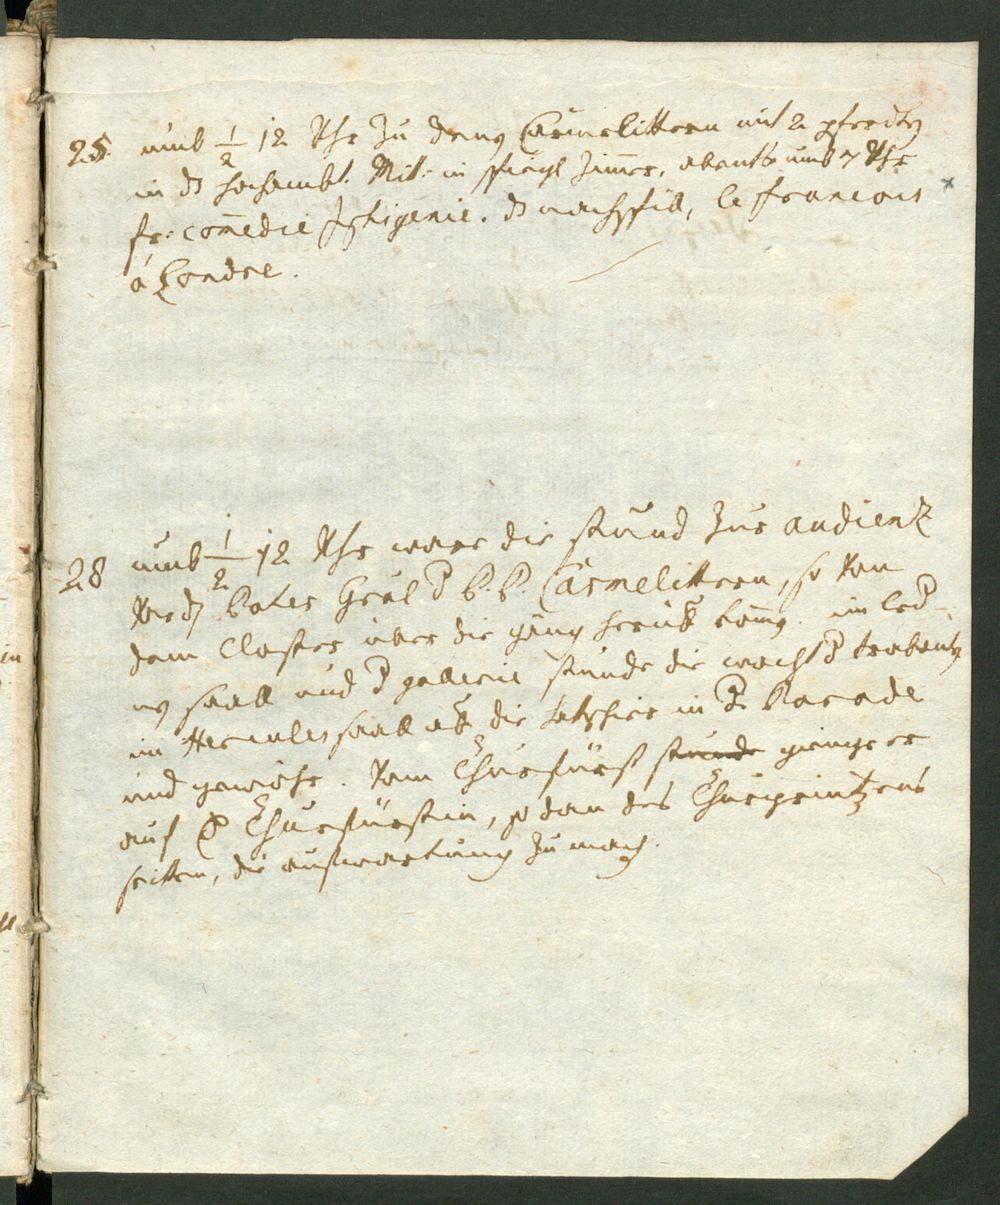 25. umb 1/2 12 Uhr zu denen Carmelittern mit 2 pferdten
in d hochambt. Mit: in spiegl Zimmer, abents umb 7 Uhr
fr: comedie Iphigenie. d nachspill, le francois
á Londre.
28 umb 1/2 12 Uhr ware die stund zur audienz
des Paters Gral d P. P. Carmelittern, so von
dem Closter über die gäng herüber kommen. im
saall und d gallerie stunde die wacht d trabanten
im Herculessaall aber die Hatschier in d Parade
und gewöhr. vom Churfürst stunde gienge er
auf d Churfürstin, so dan des Churprinzens
seitten, die aufwartung zu machen.